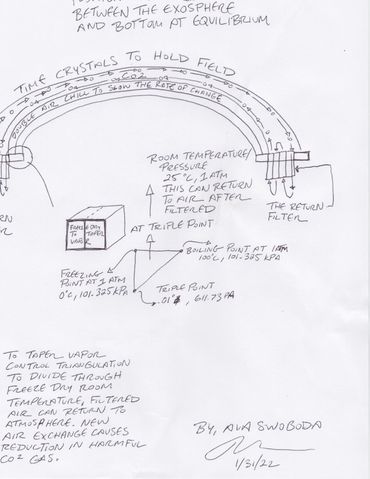 BETWEEN THE EXOSPHERE
AND BOTTOM AT EQUILIBRIUM
TIME CRYSTALS TO HOLD FIELD
CO2
DOUBLE AIR CHILL TO SLOW THE RATE OF CHANGE
ROOM TEMPERATURE/
PRESSURE
25°C, 1 ATM
THIS CAN RETURN
TO AIR AFTER
FILTERED
THE RETURN
FILTER
FREEZE DRY
TO TAPER
VAPOR
AT TRIPLE POINT
BOILING POINT AT 1 ATM
100°C, 101.325 KPA
FREEZING
POINT AT 1 ATM
0°C, 101.325 KPA
TRIPLE POINT
.01°, 611.73 PA
TO TAPER VAPOR
CONTROL TRIANGULATION
TO DIVIDE THROUGH
FREEZE DRY ROOM
TEMPERATURE, FILTERED
AIR CAN RETURN TO
ATMOSPHERE. NEW
AIR EXCHANGE CAUSES
REDUCTION IN HARMFUL
CO2 GAS.
BY, AVA SWOBODA
1/31/22